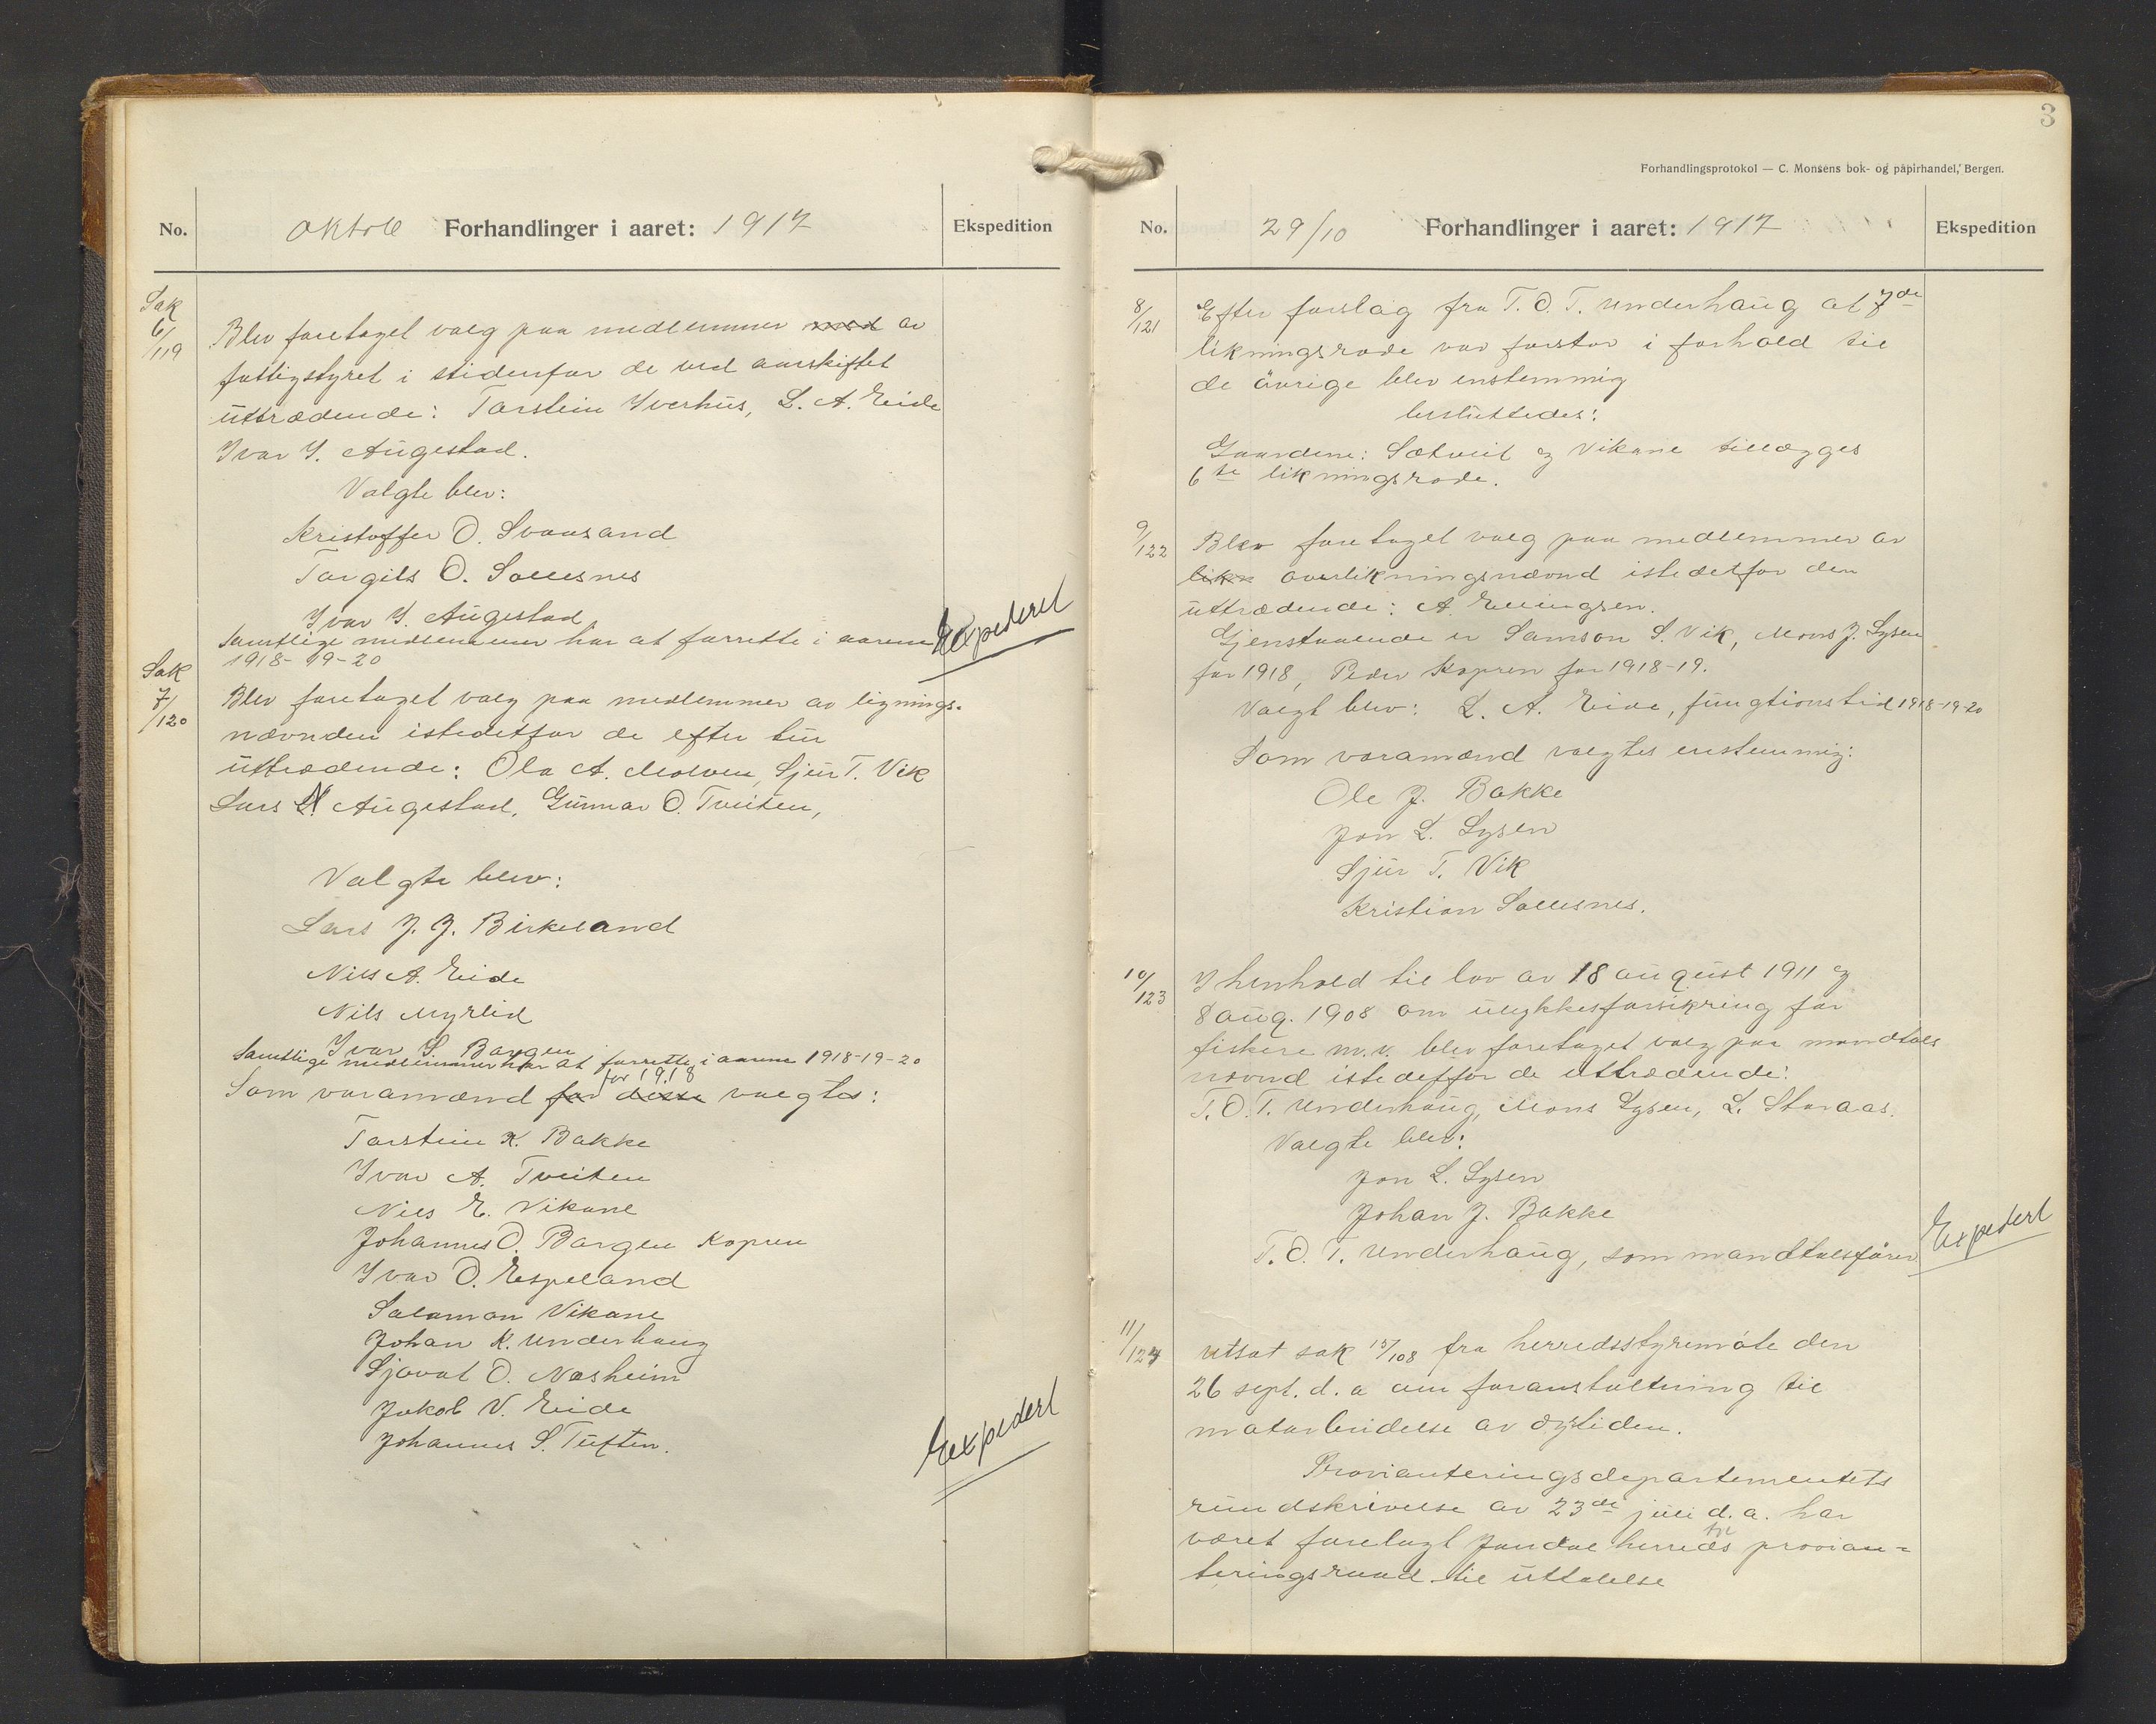 No.
Oktob Forhandlinger i aaret: 1917
Ekspedition
Sak
6/119
Blev foretaget valg paa medlemmer med av
fattigstyret i stidenfor de ved aarskiftet
uttrædende: Torstein Yverhus, L. A. Eide
Ivar I. Augestad.
Valgte blev:
Kristoffer O. Svaasand
Torgils O. Sollesnes
Ivar I. Augestad
Samtlige medlemmer har at forrette i aarene
1918-19-20
Expedert
Sak
7/120
Blev foretaget valg paa medlemmer av lignings-
nævnden istedetfor de efter tur
uttrædende: Ola A. Molven, Sjur T. Vik
Lars N. Augestad, Gunnar O. Tveiten,
Valgte blev:
Lars J. J. Birkeland
Nils A. Eide
Nils Myrlid
Ivar S. Bargen
Samtlige medlemmer har at forrette i aarene 1918-19-20
for 1918
Som varamænd for disse valgtes:
Torstein K. Bakke
Ivar A. Tveiten
Nils E. Vikane
Johannes O. Bargen Kopren
Ivar O. Espeland
Salamon Vikane
Johan K. Underhaug
Sjovat O. Næsheim
Jakob V. Eide
Johannes S. Tuften.
Expedert
3
Forhandlingsprotokol — C. Monsens bok- og papirhandel, Bergen.
No.
29/10 Forhandlinger i aaret: 1917
Ekspedition
8/121
Efter forslag fra T. O. T. Underhaug at 7de
likningsrode var forstor i forhold til
de øvrige blev enstemmig
besluttedes:
Gaardene: Sætveit og Vikane tillægges
6te likningsrode.
9/122
Blev foretaget valg paa medlemmer av
likn overlikningsnævnd istedetfor den
uttrædende: A. Ellingsen.
Gjenstaaende er Samson S. Vik, Mons J. Lysen
for 1918, Peder Kopren for 1918-19.
Valgt blev: L. A. Eide, fungtionstid 1918-19-20
Som varamænd valgtes enstemmig:
Ole J. Bakke
Jon L. Lysen
Sjur T. Vik
Kristian Sollesnes.
10/123
I henhold til lov av 18 august 1911 og
8 aug. 1908 om ulykkesforsikring for
fiskere m.v. blev foretaget valg paa mandtals
nævnd istedetfor de uttrædende:
T. O. T. Underhaug, Mons Lysen, L. Storaas.
Valgte blev:
Jon L. Lysen
Johan J. Bakke
T. O. T. Underhaug, som mandtalsfører
Expedert
11/124
Utsat sak 15/108 fra herredsstyremøte den
26 sept. d. a om foranstaltning til
motarbeidelse av dyrtiden.
Provianteringsdepartementets
rundskrivelse av 23de juli d. a. har
været forelagt Jondal herreds provian=
teringsraad til uttalelse